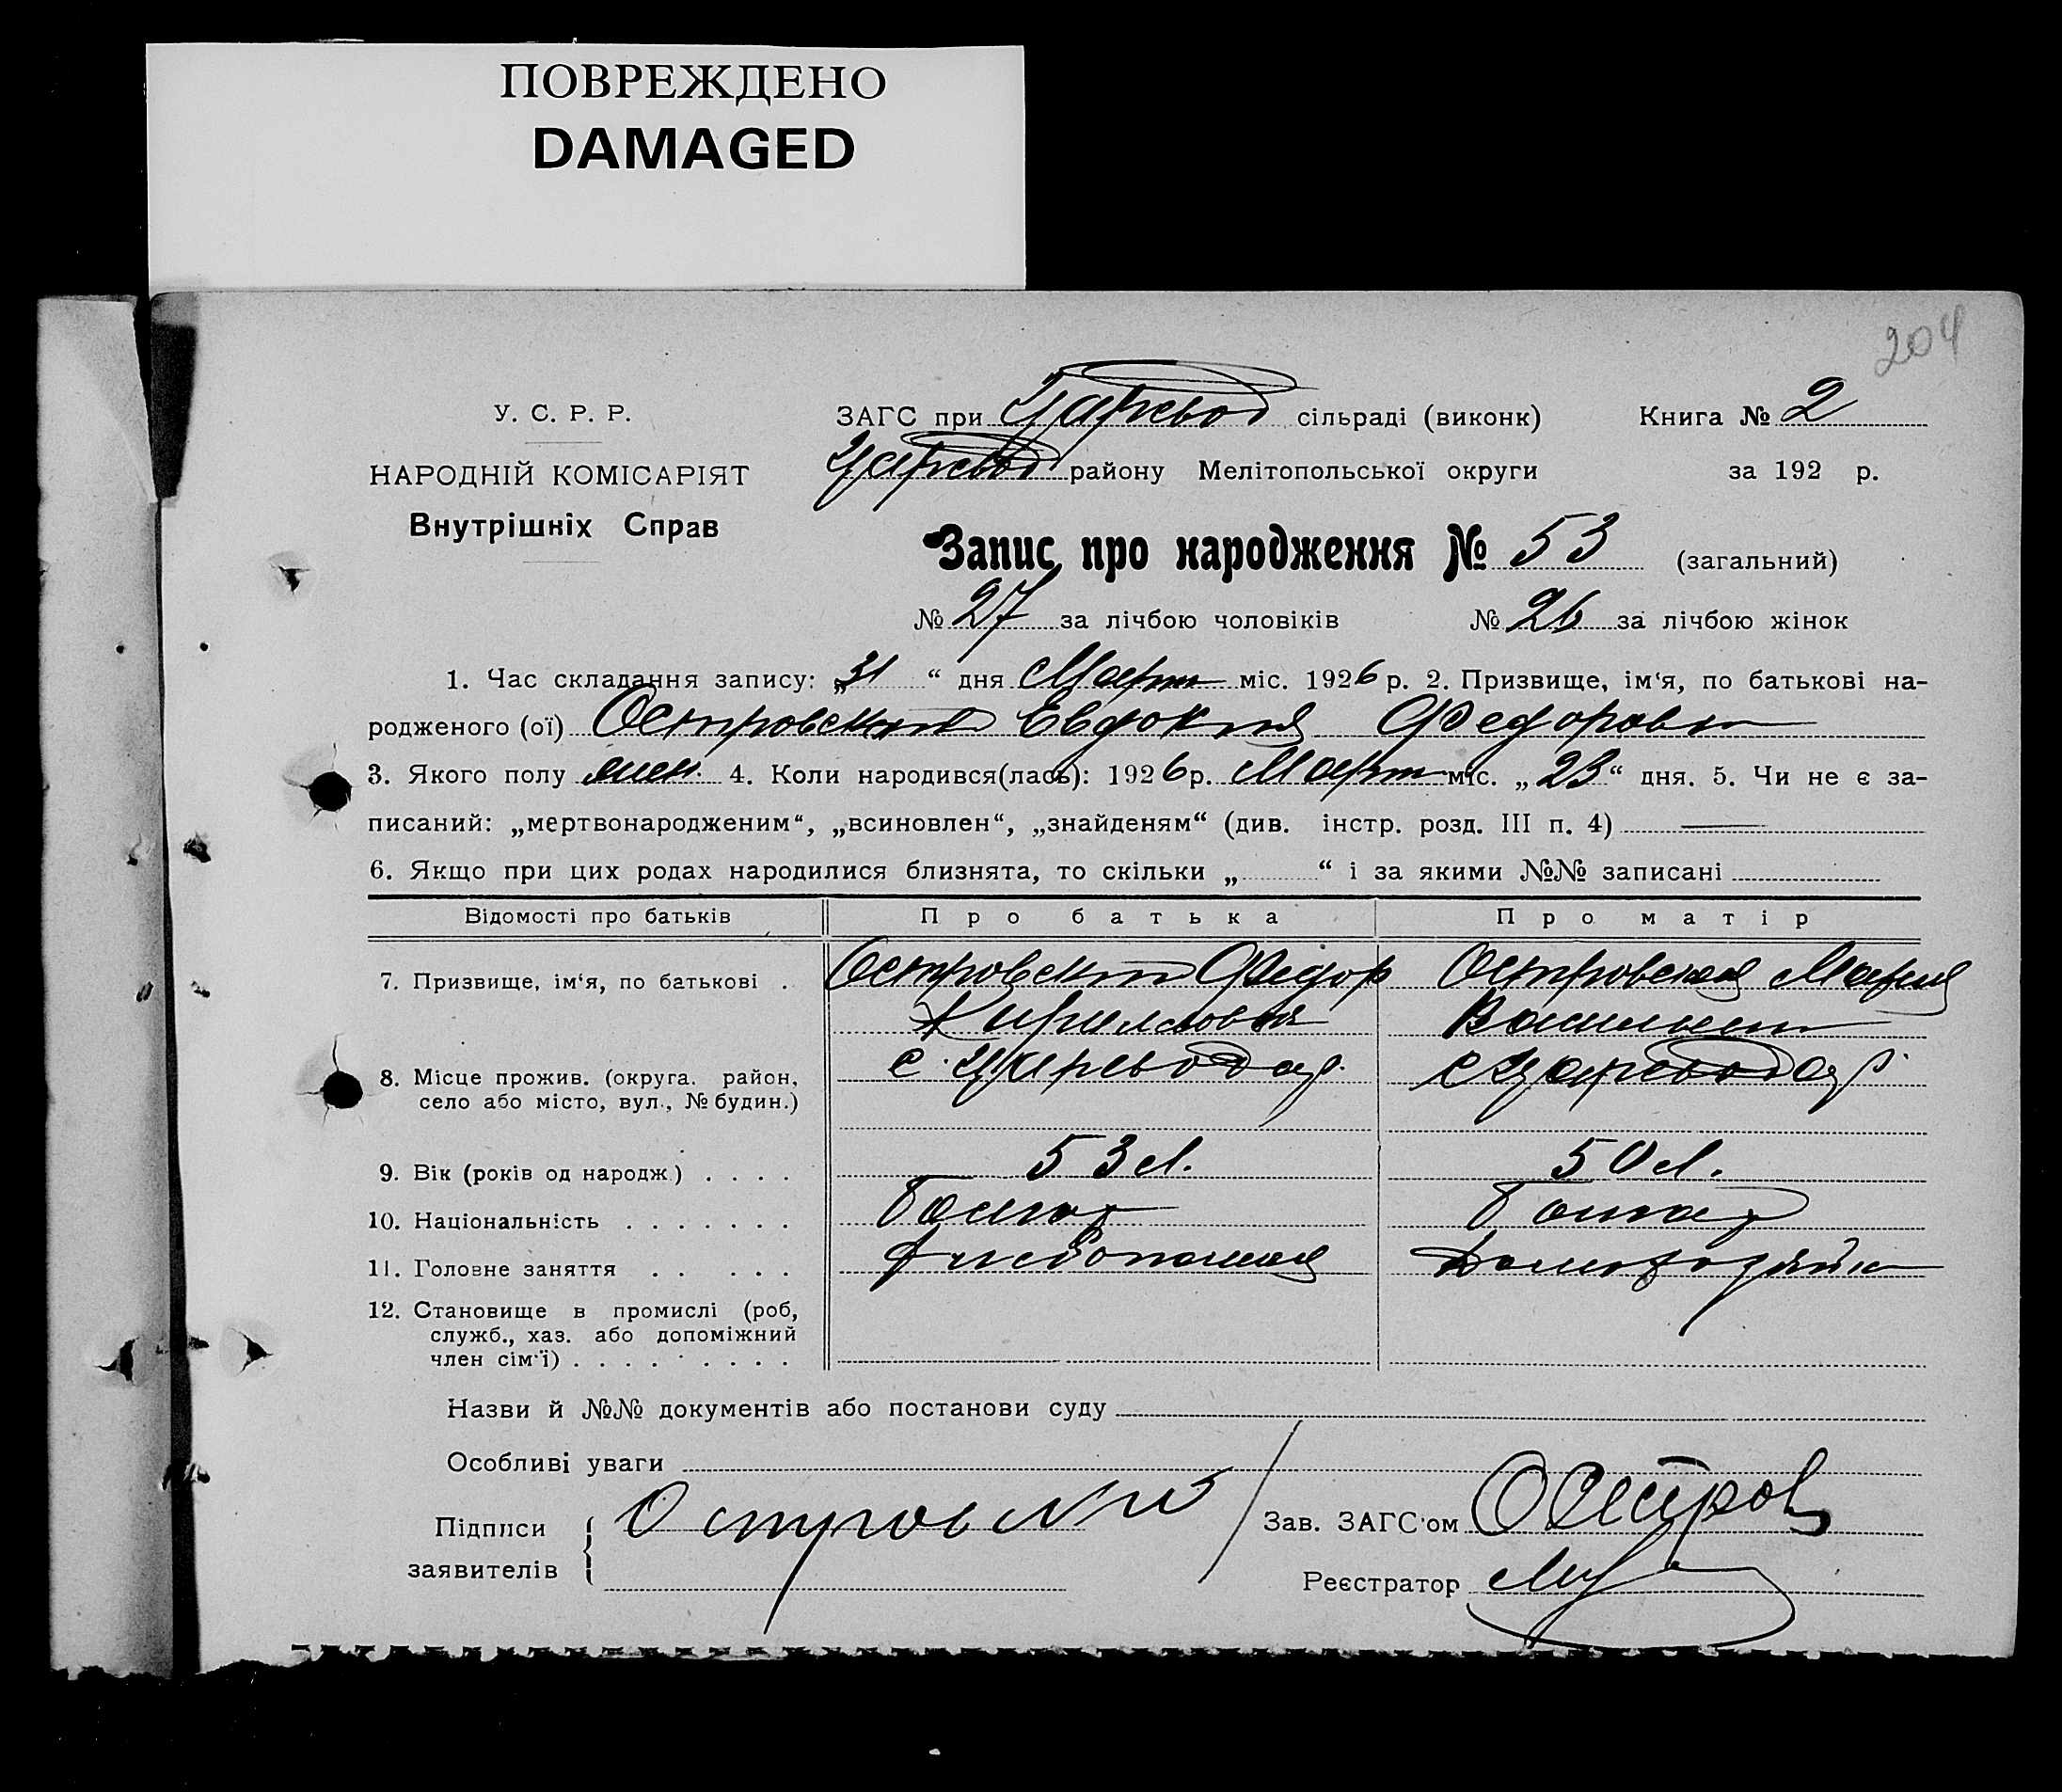 ПОВРЕЖДЕНО
DAMAGED
204
У. С. Р. Р.
ЗАГС при Царевод сільраді (виконк) Книга № 2
НАРОДНІЙ КОМІСАРІЯТ
Царевод району Мелітопольської округи за 192 р.
Внутрішніх Справ
Запис про народження № 53 (загальний)
№ 27 за лічбою чоловіків № 26 за лічбою жінок
1. Час складання запису: „31“ дня Март міс. 1926 р. 2. Призвище, ім‘я, по батькові на-
родженого (ої) Евдокия Федоровн
3. Якого полу жен. 4. Коли народився(лась): 1926 р. Март міс. „23“ дня. 5. Чи не є за-
писаний: „мертвонародженим“, „всиновлен“, „знайденям“ (див. інстр. розд. III п. 4) —
6. Якщо при цих родах народилися близнята, то скільки „ “ і за якими №№ записані
Відомості про батьків Про батька Про матір
7. Призвище, ім‘я, по батькові . Островский Федор Островская Мария
8. Місце прожив. (округа. район, с. Царевод с Царевод
село або місто, вул., № будин.)
9. Вік (років од народж.) . . . . 53 л. 50 л.
10. Національність . . . . . . . Болгар Болгар
11. Головне заняття . . . . . Хлебопашец Домохозяйка
12. Становище в промислі (роб,
служб., хаз. або допоміжний
член сім‘ї) . . . . . . . . .
Назви й №№ документів або постанови суду
Особливі уваги
Підписи Островский Зав. ЗАГС‘ом Остров
заявителів Реєстратор